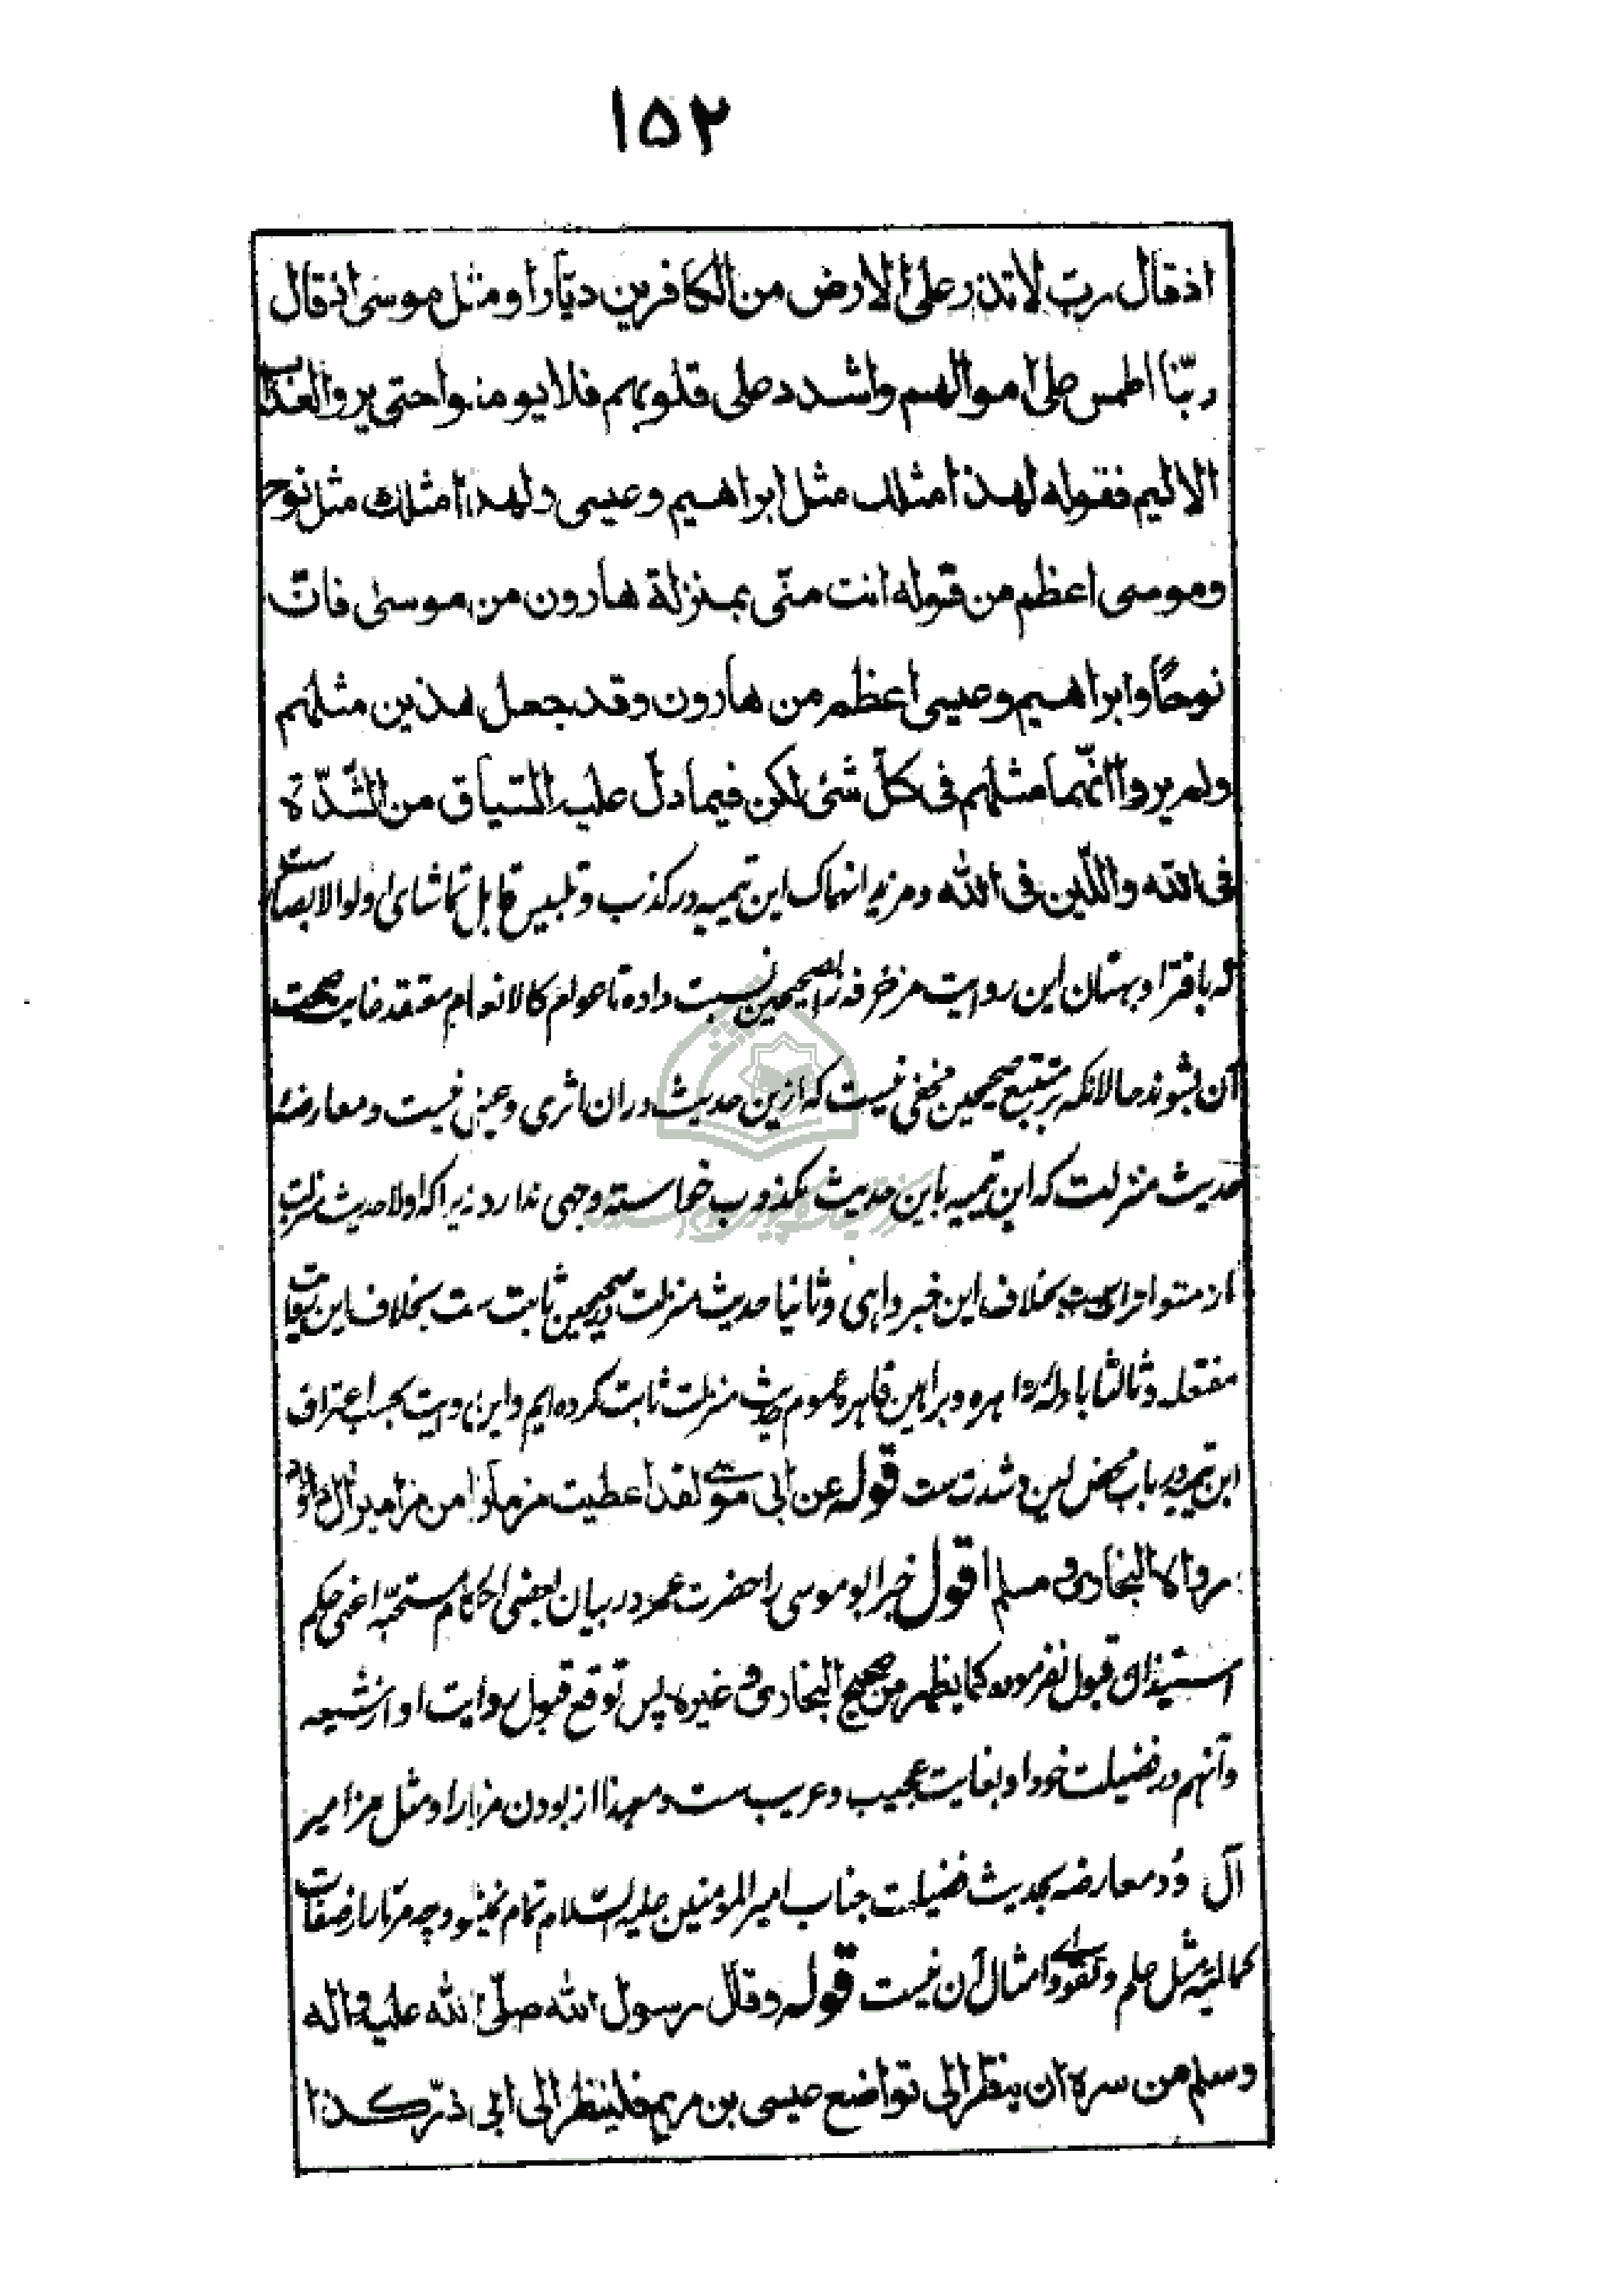 ۱۵۲
اذقال ربّ لاتذر علی الارض من الکافرین دیّارا ومثل موسی اذقال
ربّنا اطمس علی اموالهم واشدد علی قلوبهم فلا یومنوا حتی یروا العذاب
الالیم فقوله لهذا مثلک مثل ابراهیم وعیسی ولهذا مثلک مثل نوح
وموسی اعظم من قوله انت منّی بمنزلة هارون من موسی فانّ
نوحًا وابراهیم وعیسی اعظم من هارون وقد جعل هذین مثلهم
ولم یرد انّهما مثلهم فی کلّ شئ لکن فیما دلّ علیه السّیاق من الشّدّة
فی الله واللّین فی الله ومزید انهماک ابن تیمیه در کذب وتلبیس قابل تماشای اولوا الابصار ست
که بافترا وبهتان این روایت مزخرفه را بصحیحین نسبت داده تا عوام کالانعام معتقد غایت صحت
آن بشوند حالانکه بر متتبع صحیحین مخفی نیست که ازین حدیث دران اثری وعینی نیست ومعارضهٔ
حدیث منزلت که ابن تیمیه باین حدیث مکذوب خواسته وجهی ندارد زیراکه اولا حدیث منزلت
از متواترات ست بخلاف این خبر واهی وثانیا حدیث منزلت در صحیحین ثابت ست بخلاف این
مفتعله وثالثا بادلهٔ زاهره وبراهین قاهره عموم حدیث منزلت ثابت کرده ایم واین روایت بحسب اعتراف
ابن تیمیه در باب محض لین وشدت ست قوله عن ابی موسی لقد اعطیت مزمارا من مزامیر آل داود
رواه البخاری ومسلم اقول خبر ابو موسی را حضرت عمر در بیان بعضی احکام مستحبّه اعنی حکم
استیذان قبول نفرموده کما یظهر من صحیح البخاری وغیره پس توقع قبول روایت او از شیعه
وآنهم در فضیلت خود او بغایت عجیب وغریب ست ومعهذا از بودن مزمار او مثل مزامیر
آل دود معارضه بحدیث فضیلت جناب امیر المومنین علیه السّلام تمام نمیشود چه مزمار از صفات
کمالیّه مثل علم وتقوای وامثال آن نیست قوله وقال رسول الله صلّی الله علیه واله
وسلم من سره ان ینظر الی تواضع عیسی بن مریم فلینظر الی ابی ذرّ کذا